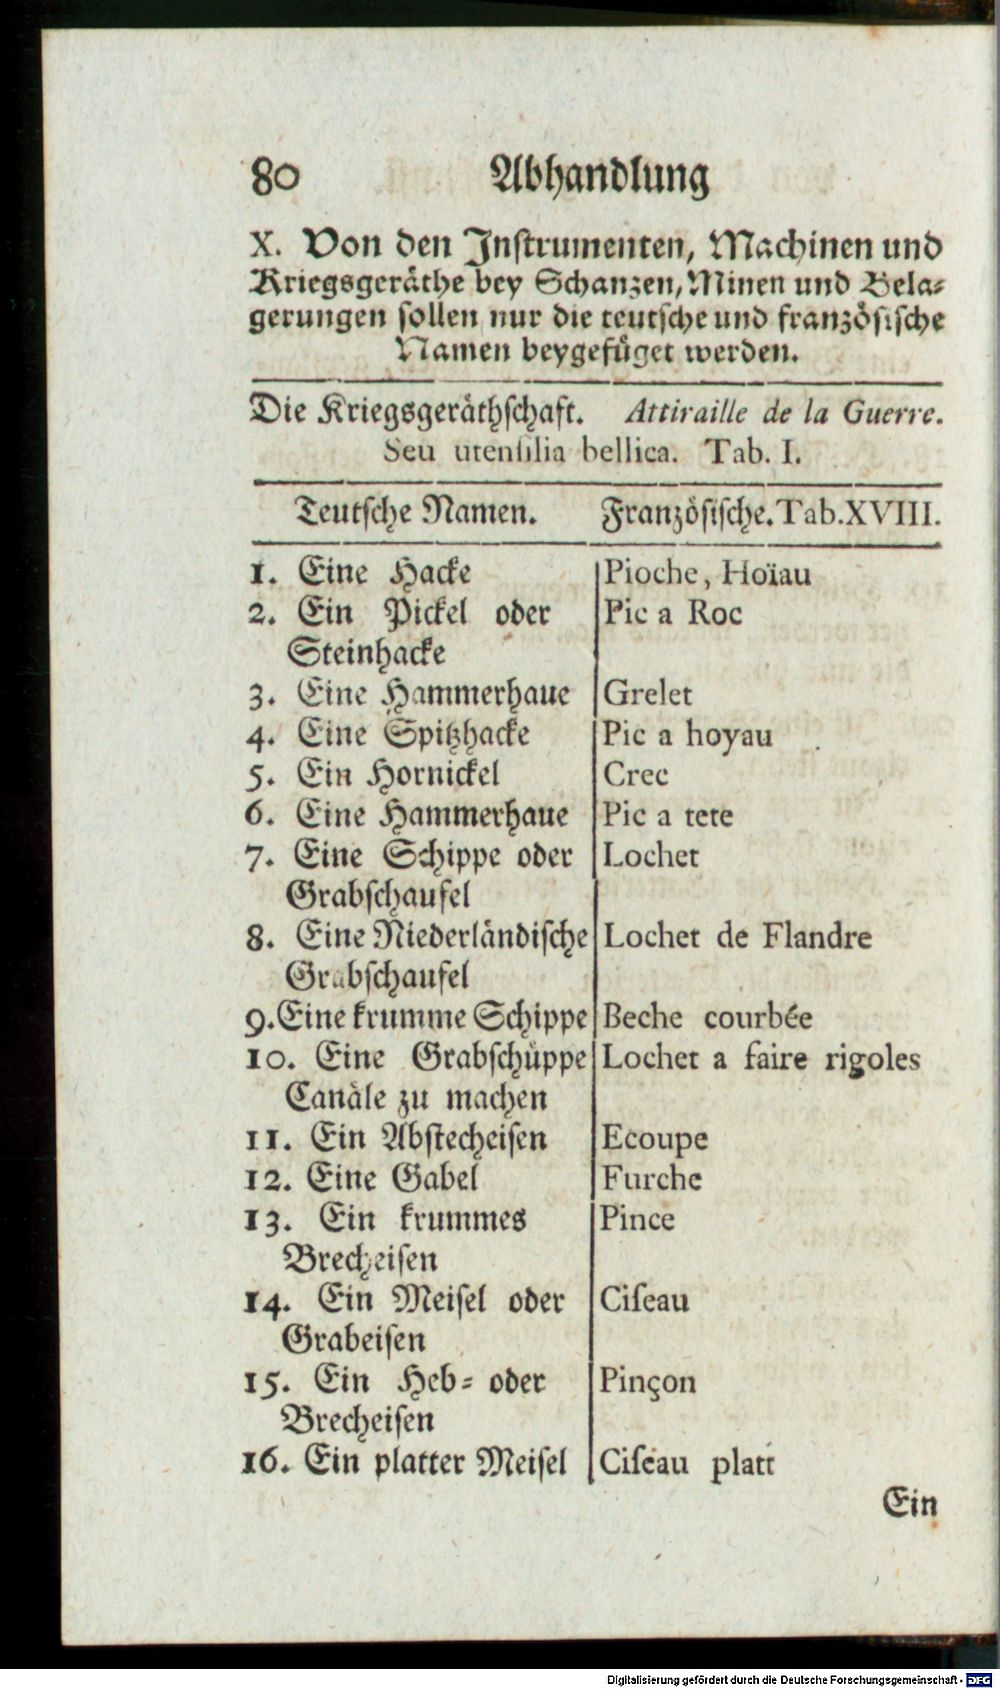 80 Abhandlung
X. Von den Instrumenten, Machinen und
Kriegsgeräthe bey Schanzen, Minen und Bela-
gerungen sollen nur die teutsche und französische
Namen beygefüget werden.
Die Kriegsgeräthschaft. Attiraille de la Guerre.
Seu utensilia bellica. Tab. I.
Teutsche Namen. Französische. Tab. XVIII.
1. Eine Hacke Pioche, Hoïau
2. Ein Pickel oder Pic a Roc
Steinhacke
3. Eine Hammerhaue Grelet
4. Eine Spitzhacke Pic a hoyau
5. Ein Hornickel Crec
6. Eine Hammerhaue Pic a tete
7. Eine Schippe oder Lochet
Grabschaufel
8. Eine Niederländische Lochet de Flandre
Grabschaufel
9. Eine krumme Schippe Beche courbée
10. Eine Grabschüppe Lochet a faire rigoles
Canäle zu machen
11. Ein Abstecheisen Ecoupe
12. Eine Gabel Furche
13. Ein krummes Pince
Brecheisen
14. Ein Meisel oder Ciſeau
Grabeisen
15. Ein Heb- oder Pinçon
Brecheisen
16. Ein platter Meisel Ciſeau platt
Ein
Digitalisierung gefördert durch die Deutsche Forschungsgemeinschaft - DFG